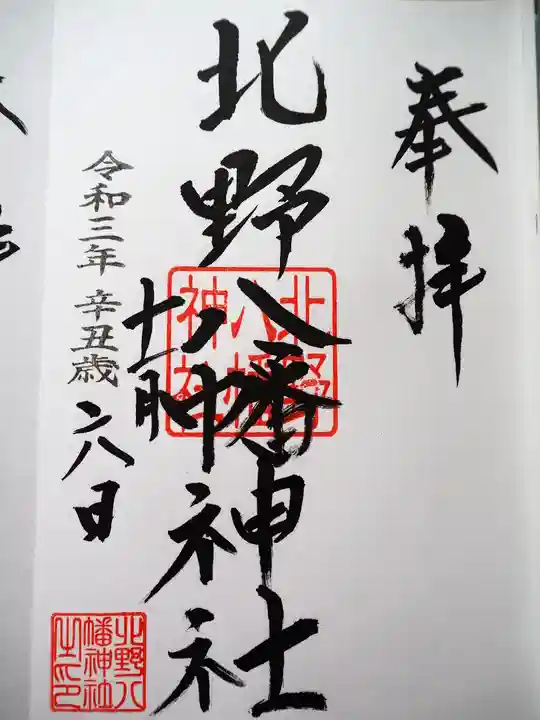 奉拝
北野八幡神社
令和三年 辛丑歳
十一月
六日
北野八幡神社
北野八幡神社之印